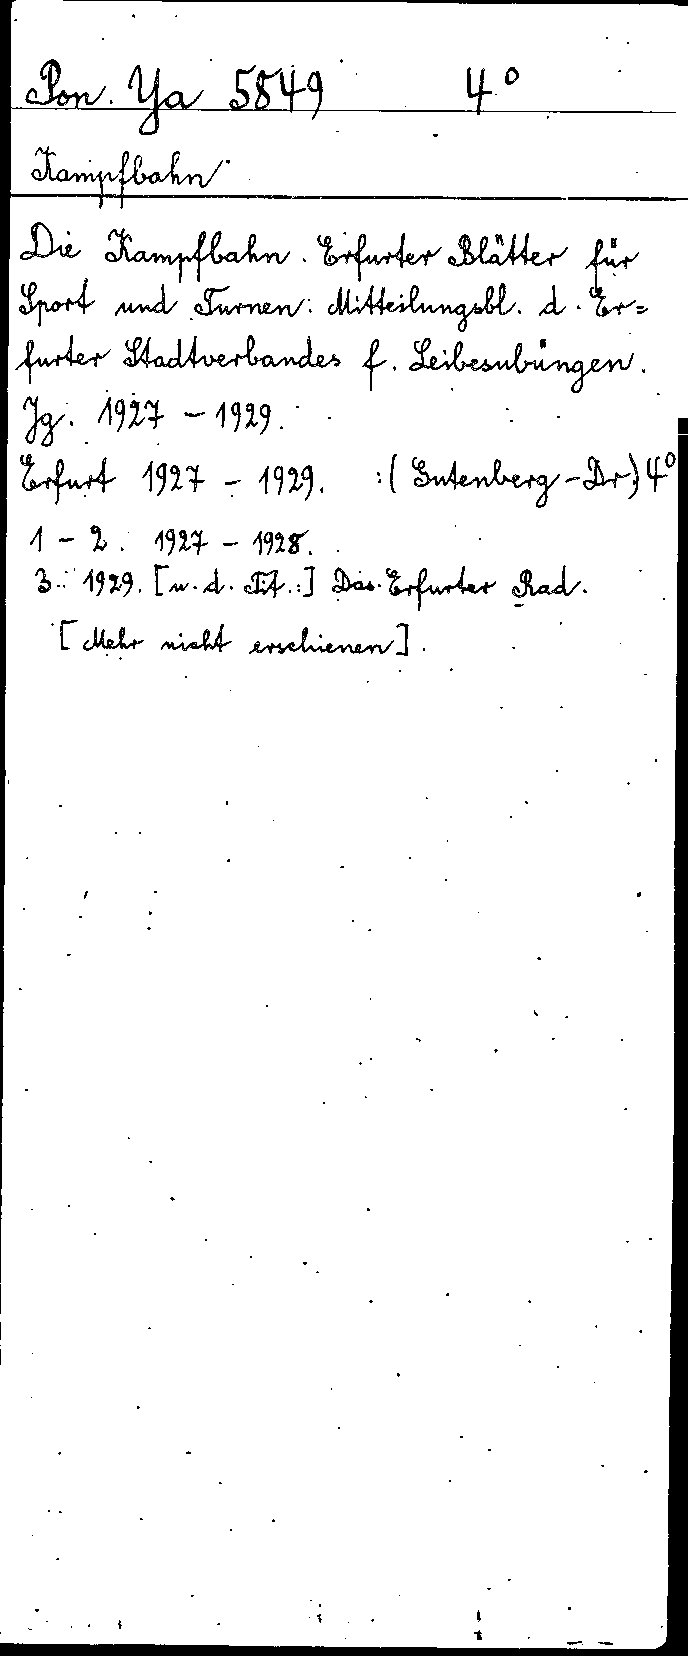 Pon. Ya 5849 4°
Kampfbahn
Die Kampfbahn. Erfurter Blätter für
Sport und Turnen: Mitteilungsbl. d. Er=
furter Stadtverbandes f. Leibesübungen.
Jg. 1927 - 1929.
Erfurt 1927 - 1929. :(Gutenberg-Dr.) 4°
1 - 2. 1927 - 1928.
3. 1929. [u. d. Tit.:] Das Erfurter Rad.
[Mehr nicht erschienen].